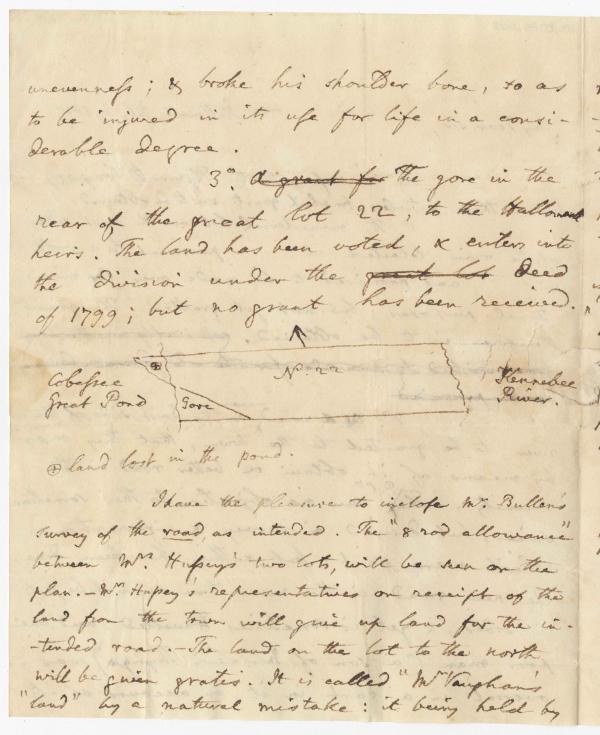 unevenness; & broke his shoulder bone, so as
to be injured in its use for life in a consi-
derable degree.
3º. A grant for The gore in the
rear of the great lot 22, to the Hallowell
heirs. The land has been voted, & enters into
the division under the great lot deed
of 1799; but no grant has been received.
Nº. 22
Cobessee
Great Pond
Gore
Kennebec
River.
⊕ land lost in the pond.
I have the pleasure to inclose Mr. Bullen's
survey of the road, as intended. The "8 rod allowance"
between Mrs. Hussey's two lots, will be seen on the
plan. - Mrs. Hussey's representatives on receipt of the
land from the town will give up land for the in-
-tended road. - The land on the lot to the north
will be given gratis. It is called "Mr. Vaughan's
"land" by a natural mistake: it being held by